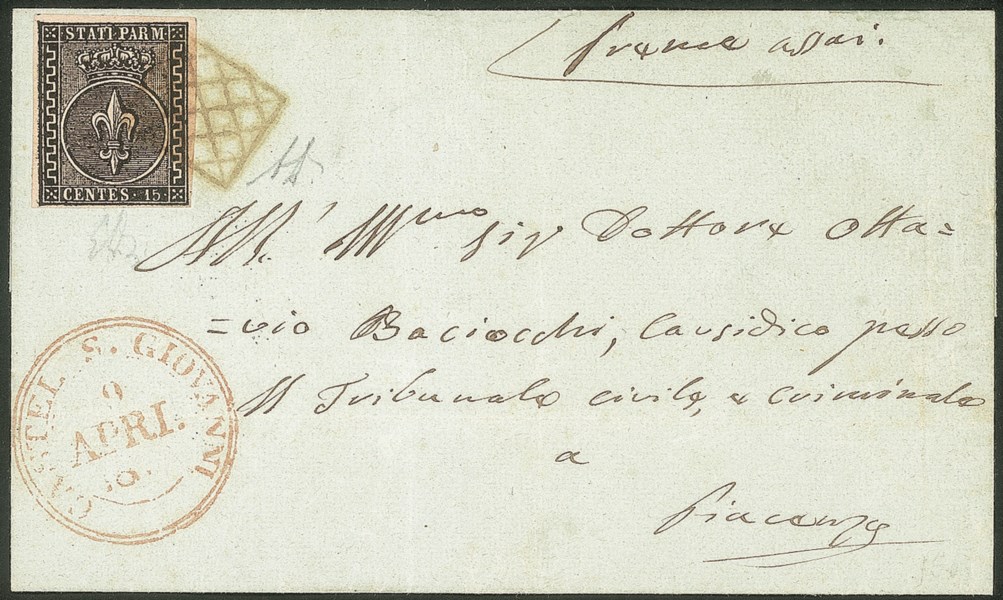 STATI PARM
CENTES · 15 ·
Preme assai.
All' Ill.mo Sig Dottore Otta=
=vio Baciocchi, Causidico presso
Il Tribunale civile, e criminale
a
Piacenza
CASTEL S. GIOVANNI
9
APRI.